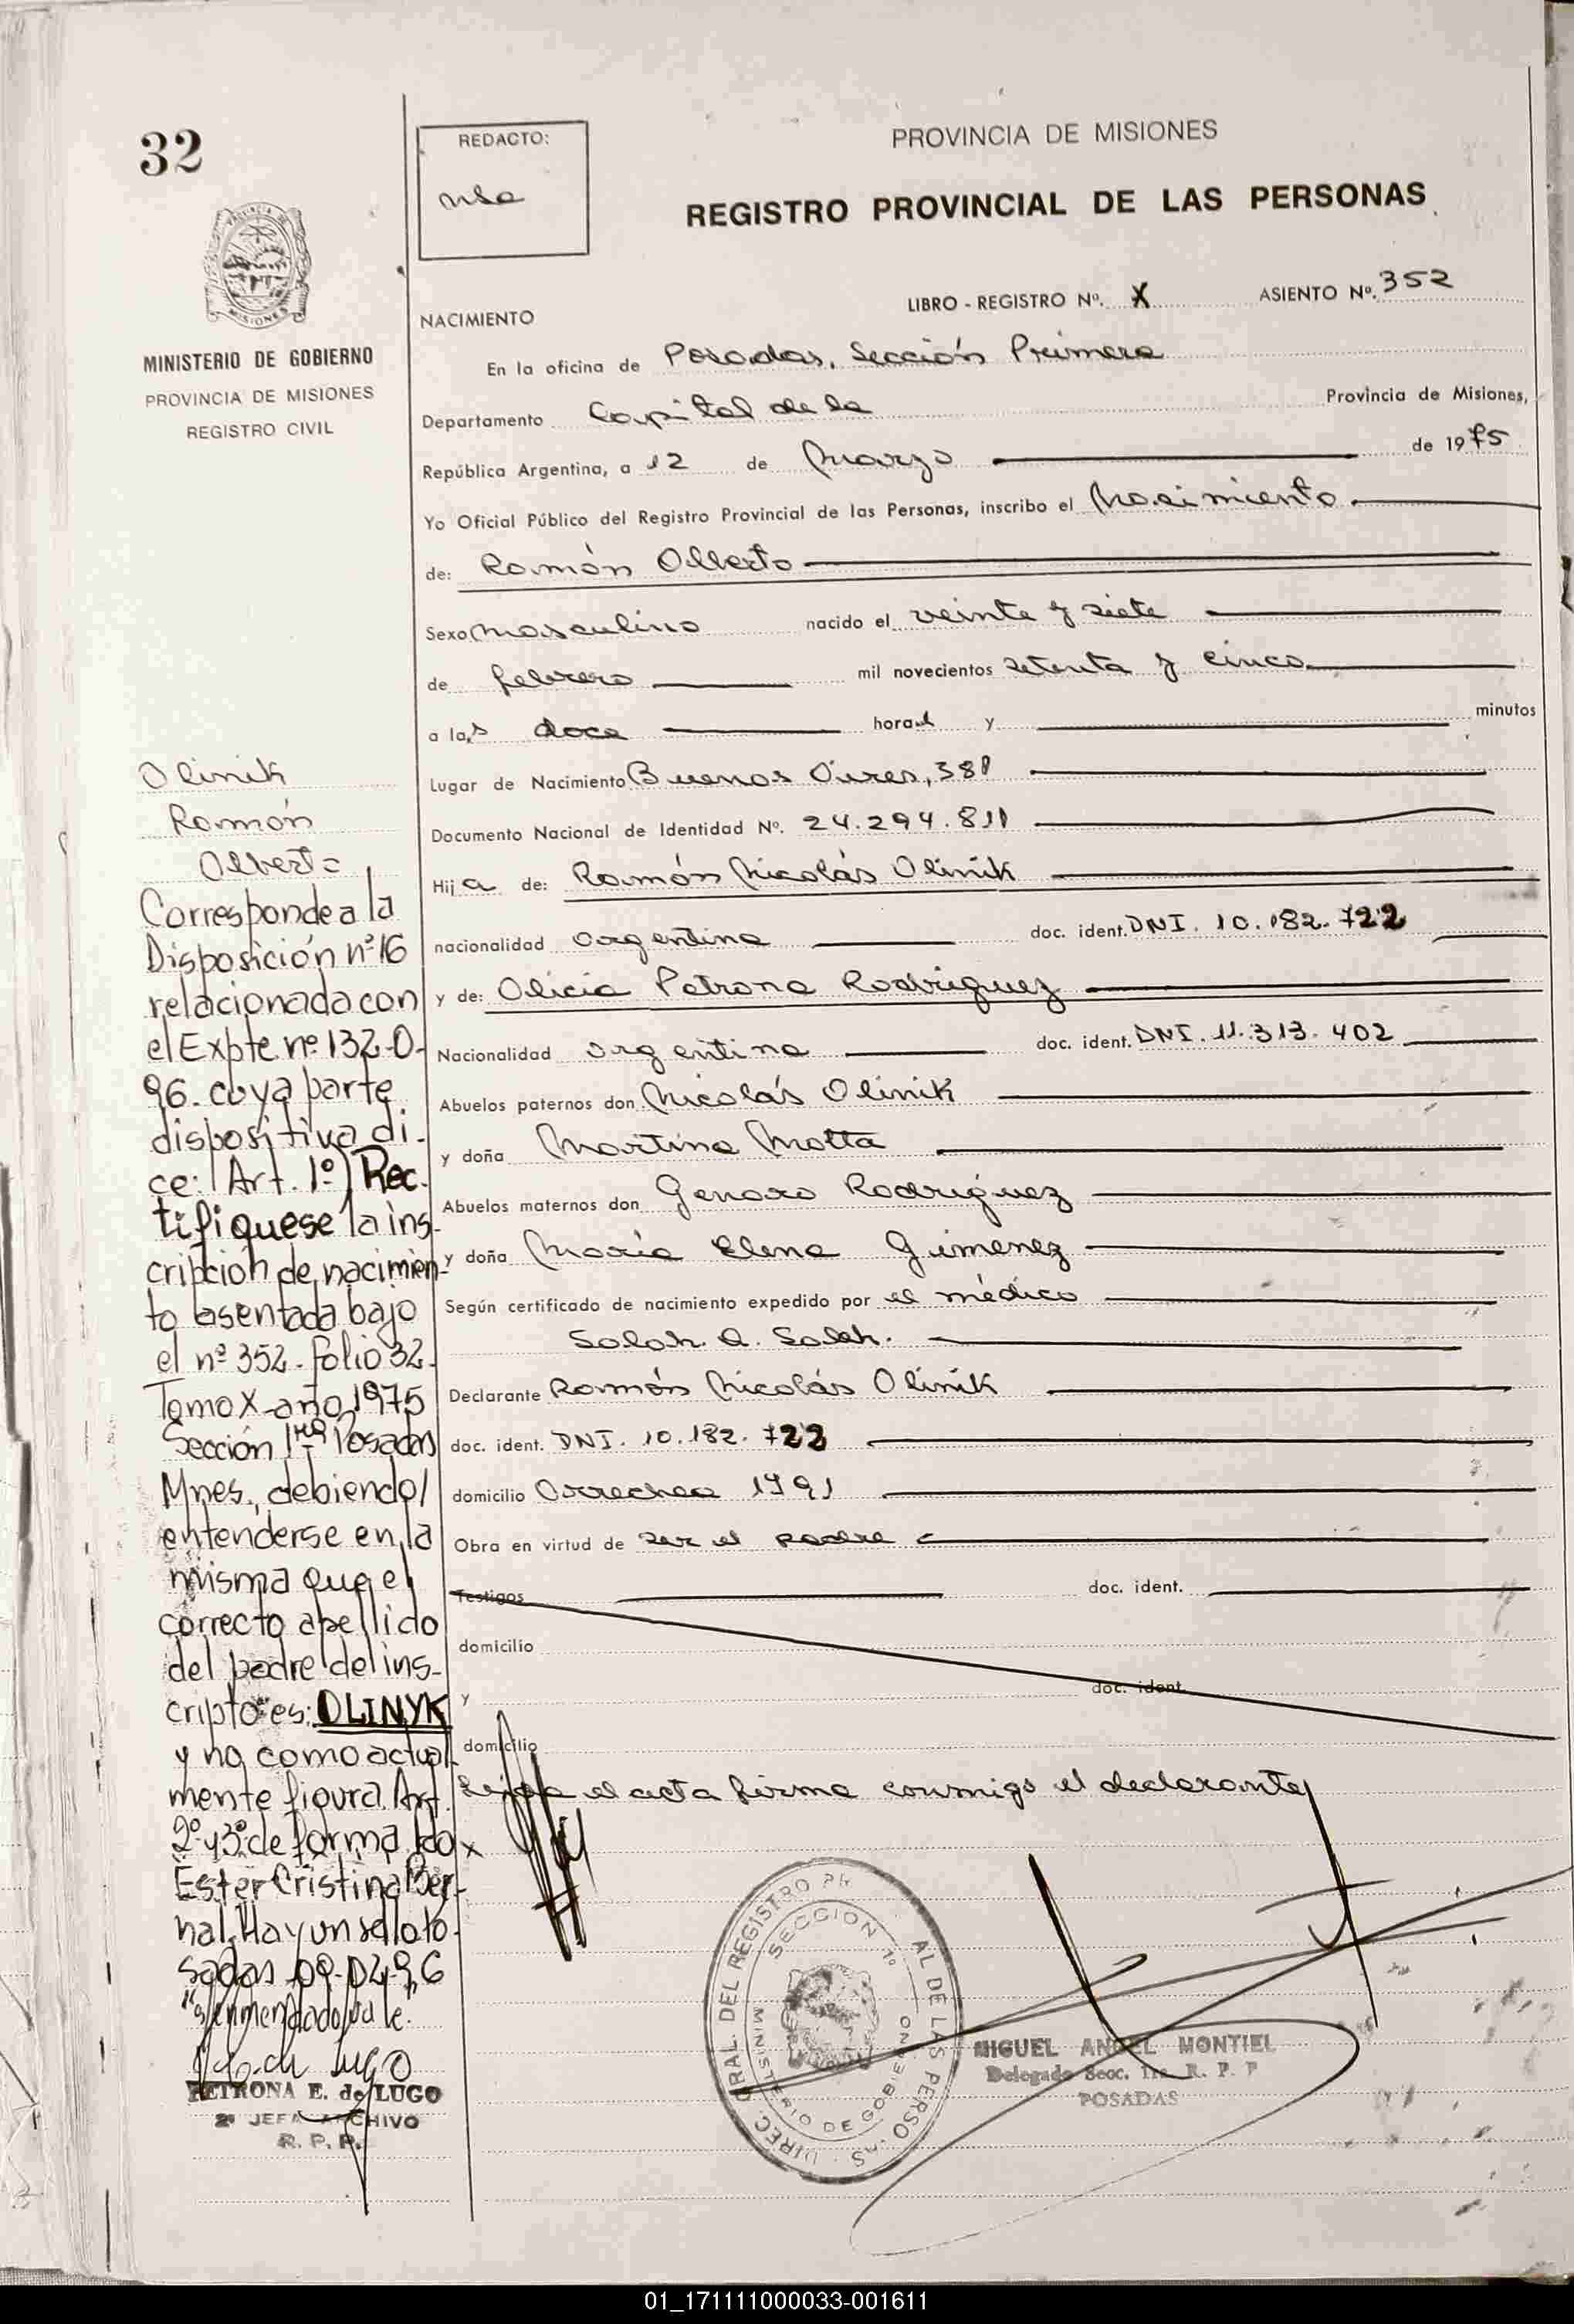 32
REDACTO:
nla
PROVINCIA DE MISIONES
REGISTRO PROVINCIAL DE LAS PERSONAS
MINISTERIO DE GOBIERNO
PROVINCIA DE MISIONES
REGISTRO CIVIL
LIBRO - REGISTRO Nº. X ASIENTO Nº. 352
NACIMIENTO
En la oficina de Posadas, Sección Primera
Departamento Capital de la Provincia de Misiones,
República Argentina, a 12 de Marzo de 1975
Yo Oficial Público del Registro Provincial de las Personas, inscribo el Nacimiento
de: Ramón Alberto
Sexo masculino nacido el veinte y siete
de febrero mil novecientos setenta y cinco
a las doce horas y minutos
Lugar de Nacimiento Buenos Aires, 381
Documento Nacional de Identidad Nº. 24.294.811
Hijo de: Ramón Nicolás Olinik
nacionalidad argentina doc. ident. DNI. 10.182.722
y de: Alicia Petrona Rodriguez
Nacionalidad argentina doc. ident. DNI. 11.313.402
Abuelos paternos don Nicolás Olinik
y doña Martina Motta
Abuelos maternos don Genaro Rodriguez
y doña María Elena Gimenez
Según certificado de nacimiento expedido por el médico
Salah. A. Saleh.
Declarante Ramón Nicolás Olinik
doc. ident. DNI. 10.182.722
domicilio Arrechea 1791
Obra en virtud de ser el padre
Testigos doc. ident.
domicilio
y doc. ident.
domicilio
Leída el acta firma conmigo el declarante
Olinik
Ramón
Alberto
Corresponde a la
Disposición nº 16
relacionada con
el Expte nº 132-0-
96. cuya parte
dispositiva di-
ce: Art. 1º) Rec-
tifiquese la ins-
cripción de nacimien-
to asentada bajo
el nº 352-folio 32-
Tomo X-año 1975
Sección 1ra Posadas
Mnes., debiendo
entenderse en la
misma que el
correcto apellido
del padre del ins-
cripto es: OLINYK
y no como actual-
mente figura. Art.
2º y 3º de forma. Fdo
Ester Cristina Ber-
nal. Hay un sello Po-
sadas 09-04-96
"s/enmendado vale."
PETRONA E. de LUGO
2ª JEFA ARCHIVO
R. P. P.
DIREC. GRAL. DEL REGISTRO PR AL DE LAS PERSO AS
SECCION 1º
MINISTERIO DE GOBIERNO
MIGUEL ANGEL MONTIEL
Delegado Secc. 1ra R. P. P
POSADAS
01_171111000033-001611